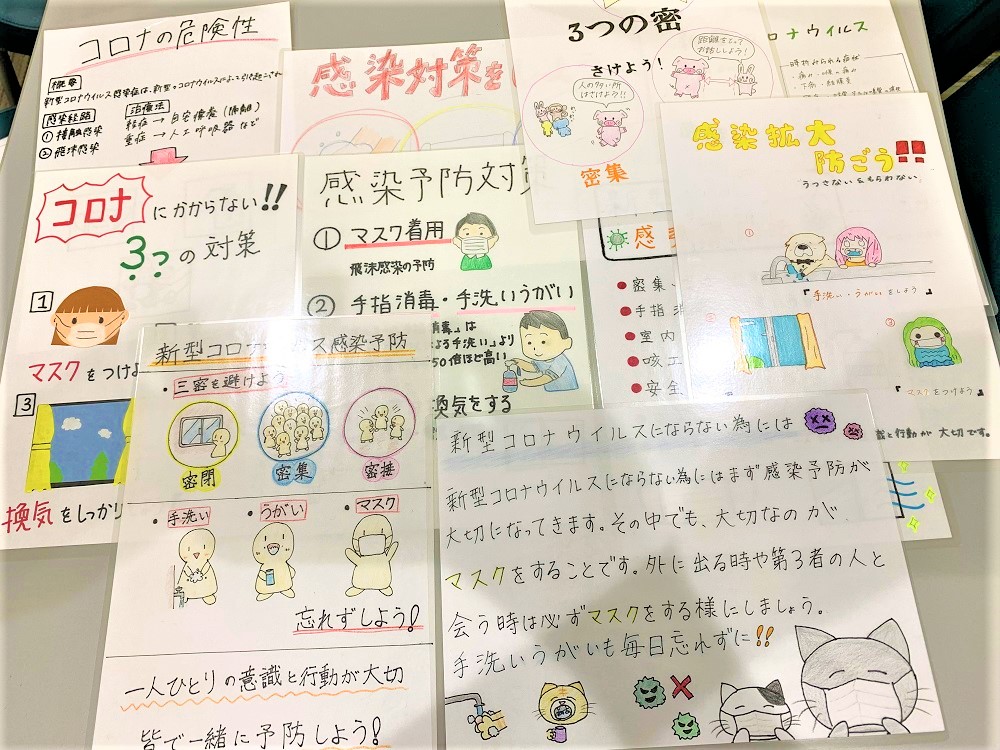 コロナの危険性
概要
新型コロナウイルス感染症は、新型コロナウイルスによって引き起こされ
感染経路
① 接触感染
② 飛沫感染
治療法
軽症 → 自宅療養 (隔離)
重症 → 人工呼吸器など
感染対策を
3つの密
さけよう!
人の多い所
はさけよう!!
距離をとって
お話ししよう!
密集
ロナウイルス
コロナにかからない!!
3つの対策
1
マスクをつけよ
3
換気をしっかり
感染予防対策
① マスク着用
飛沫感染の予防
② 手指消毒・手洗いうがい
消毒」は
よる手洗い」より
50倍ほど高い
換気をする
感
密集、
手指消
室内
咳エ
安全
感染拡大
防ごう!!
うつさない&もらわない。
①
『手洗い・うがいをしよう』
③
『マスクをつけよう』
識と行動が大切です。
新型コロナ
ス感染予防
・三密を避けよう
密閉
密集
密接
・手洗い
・うがい
・マスク
忘れずしよう!
一人ひとりの意識と行動が大切
皆で一緒に予防しよう!
新型コロナウイルスにならない為には
新型コロナウイルスにならない為にはまず感染予防が
大切になってきます。その中でも、大切なのが
マスクをすることです。外に出る時や第3者の人と
会う時は必ずマスクをする様にしましょう。
手洗いうがいも毎日忘れずに!!